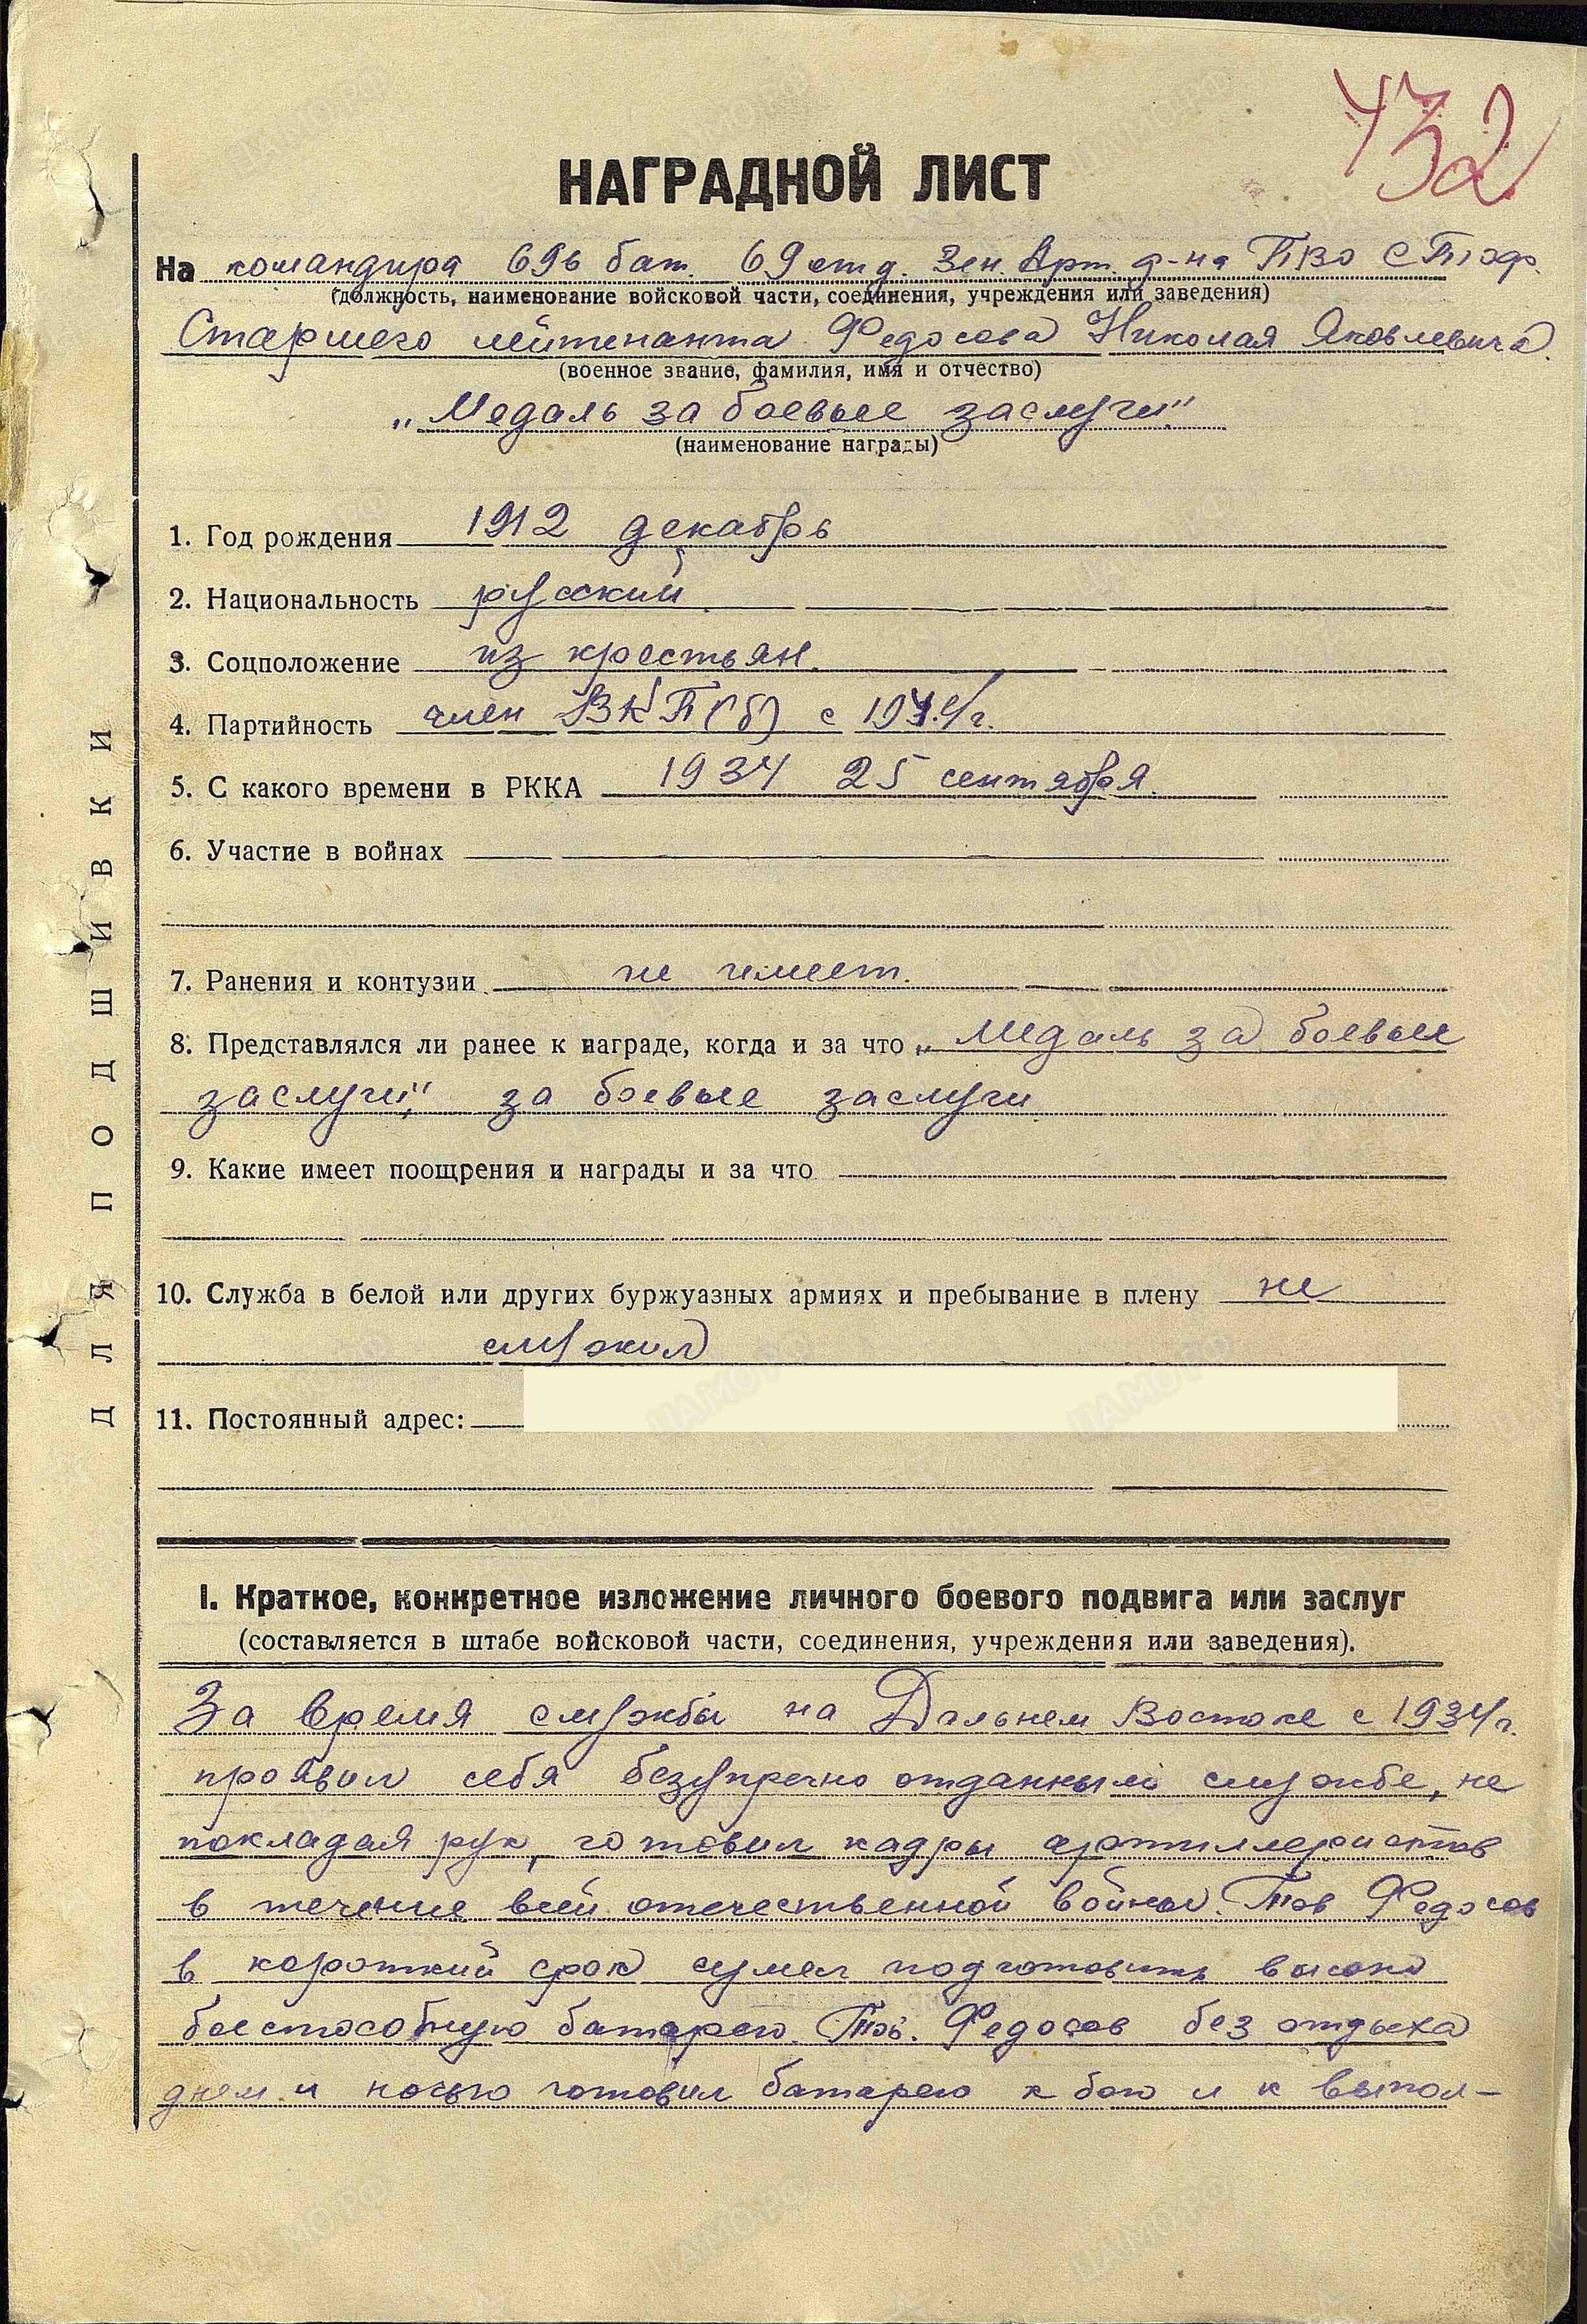 432
НАГРАДНОЙ ЛИСТ
На командира 69б бат. 69 отд. Зен. Арт. д-на ПВО СТОФ.
(должность, наименование войсковой части, соединения, учреждения или заведения)
Старшего лейтенанта Федосова Николая Яковлевича.
(военное звание, фамилия, имя и отчество)
„Медаль за боевые заслуги"
(наименование награды)
1. Год рождения 1912 декабрь
2. Национальность русский
3. Соцположение из крестьян.
4. Партийность член ВКП(б) с г.
5. С какого времени в РККА 1934 25 сентября.
6. Участие в войнах
7. Ранения и контузии не имеет.
8. Представлялся ли ранее к награде, когда и за что „Медаль за боевые
заслуги" за боевые заслуги
9. Какие имеет поощрения и награды и за что
10. Служба в белой или других буржуазных армиях и пребывание в плену не
служил
11. Постоянный адрес:
I. Краткое, конкретное изложение личного боевого подвига или заслуг
(составляется в штабе войсковой части, соединения, учреждения или заведения).
За время службы на Дальнем Востоке с 1934г.
проявил себя безупречно отданным службе, не
покладая рук, готовил кадры артиллеристов
в течение всей отечественной войны. Тов Федосов
в короткий срок сумел подготовить высоко
боеспособную батарею. Тов. Федосов без отдыха
днем и ночью готовил батарею к бою и к выпол-
ДЛЯ ПОДШИВКИ